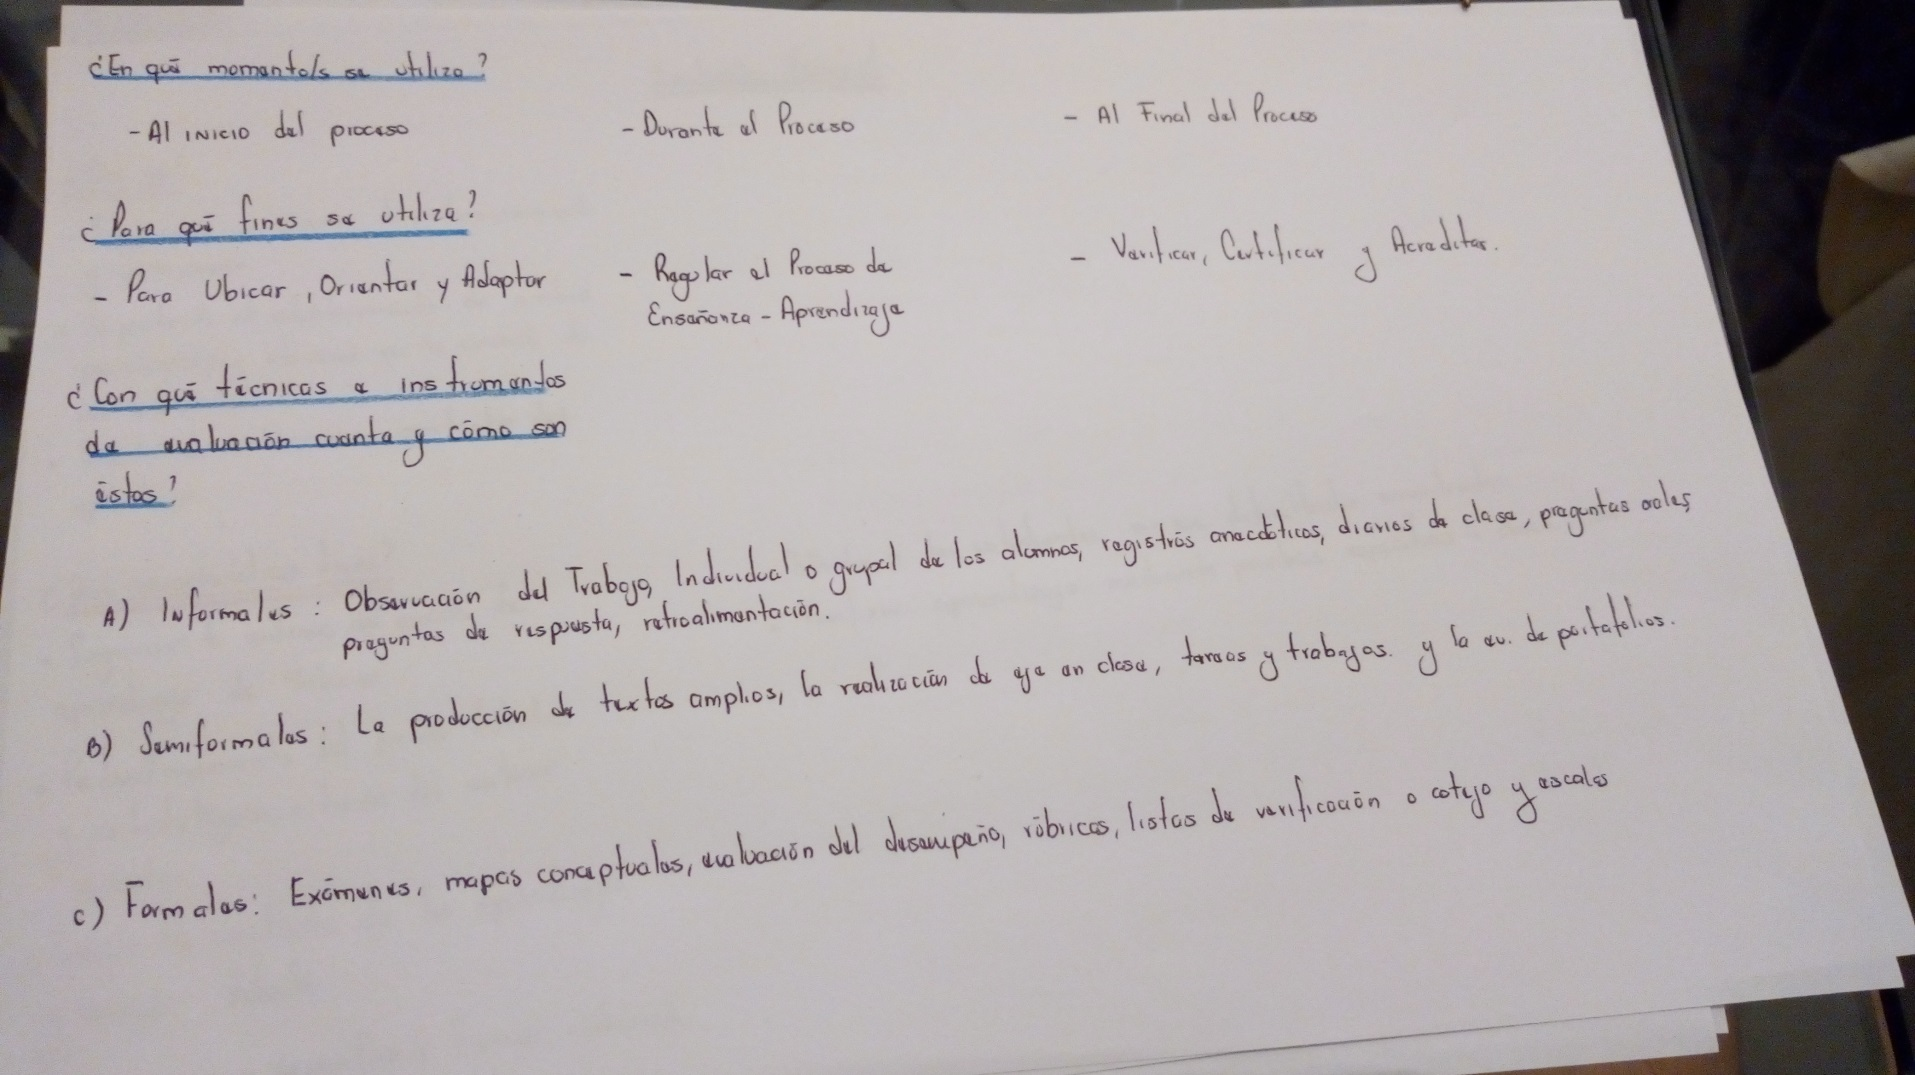 ¿En qué momento/s se utiliza?
- Al inicio del proceso
- Durante el Proceso
- Al Final del Proceso
¿Para qué fines se utiliza?
- Para Ubicar, Orientar y Adaptar
- Regular el Proceso de
Enseñanza - Aprendizaje
- Verificar, Certificar y Acreditar.
¿Con qué técnicas e instrumentos
de evaluación cuenta y cómo son
éstos?
A) Informales: Observación del Trabajo, Individual o grupal de los alumnos, registros anecdóticos, diarios de clase, preguntas orales,
preguntas de respuesta, retroalimentación.
B) Semiformales: La producción de textos amplios, la realización de eje en clase, tareas y trabajos. y la ev. de portafolios.
c) Formales: Exámenes, mapas conceptuales, evaluación del desempeño, rúbricas, listas de verificación o cotejo y escalas